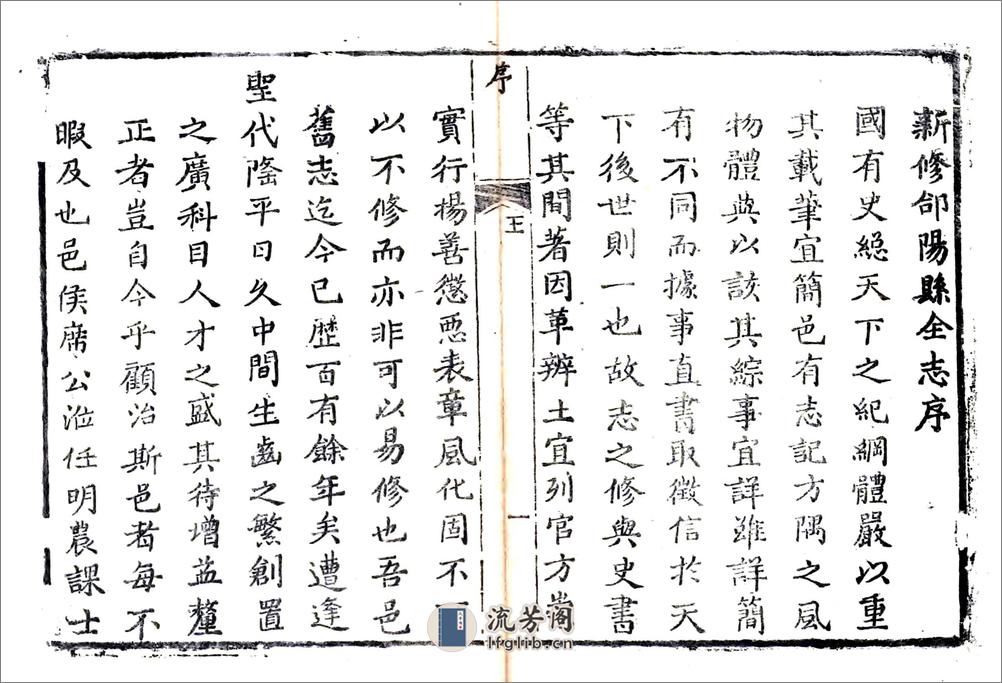 新修郃陽縣全志序
國有史綂天下之紀綱體嚴以重
其載筆宜簡邑有志記方隅之風
物體典以該其綜事宜詳雖詳簡
有不同而據事直書取徵信於天
下後世則一也故志之修與史書
等其間著因革辨土宜列官方
序
王
一
實行揚善懲惡表章風化固不
以不修而亦非可以易修也吾邑
舊志迄今已歷百有餘年矣遭逢
聖代隆平日久中間生齒之繁創置
之廣科目人才之盛其待增益釐
正者豈自今乎顧治斯邑者每不
暇及也邑侯席公涖任明農課士
流芳閣
lfglib.cn